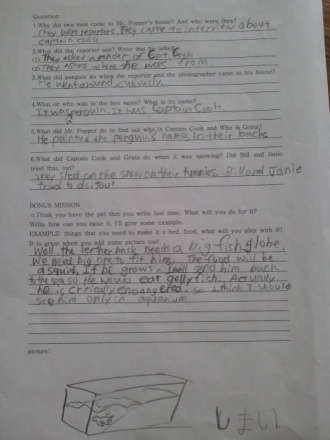 Question
1.Who did two men come to Mr. Popper's house? And who were they?
They were reporters. They came to interview about
captain cook
2.What did the reporter ask? Write that he asked
(1) They asked a gender of Capt Cook
(2) They asked where he was from
3.What did penguin do when the reporter and the photographer came to his house?
He went around, curiously.
4.What or who was in the box again? What is its name?
It was penguin, it was Captain Cook
5.What did Mr. Popper do to find out who is Captain Cook and Who is Greta?
He painted the penguins names in their backs
6.What did Captain Cook and Greta do when it was snowing? Did Bill and Janie
tried that, too?
They sled on the snow on their tummies. Bill and Janie
tried to do, too!
BONUS MISSION
Think you have the pet that you write last time. What will you do for it?
Write how can you raise it. I'll give some example.
EXAMPLE: things that you need to make it a bed, food, what will you play with it?
It is great when you add some picture too!
Well, the letherback needs a big fish globe.
We need big one to fit him. The food will be
a squid. If he grows, I will send him back
to the sea so He would eat gellyfish. Actually
he is critically endangered. so I think I should
see him only in aquarium.
picture:
しまい